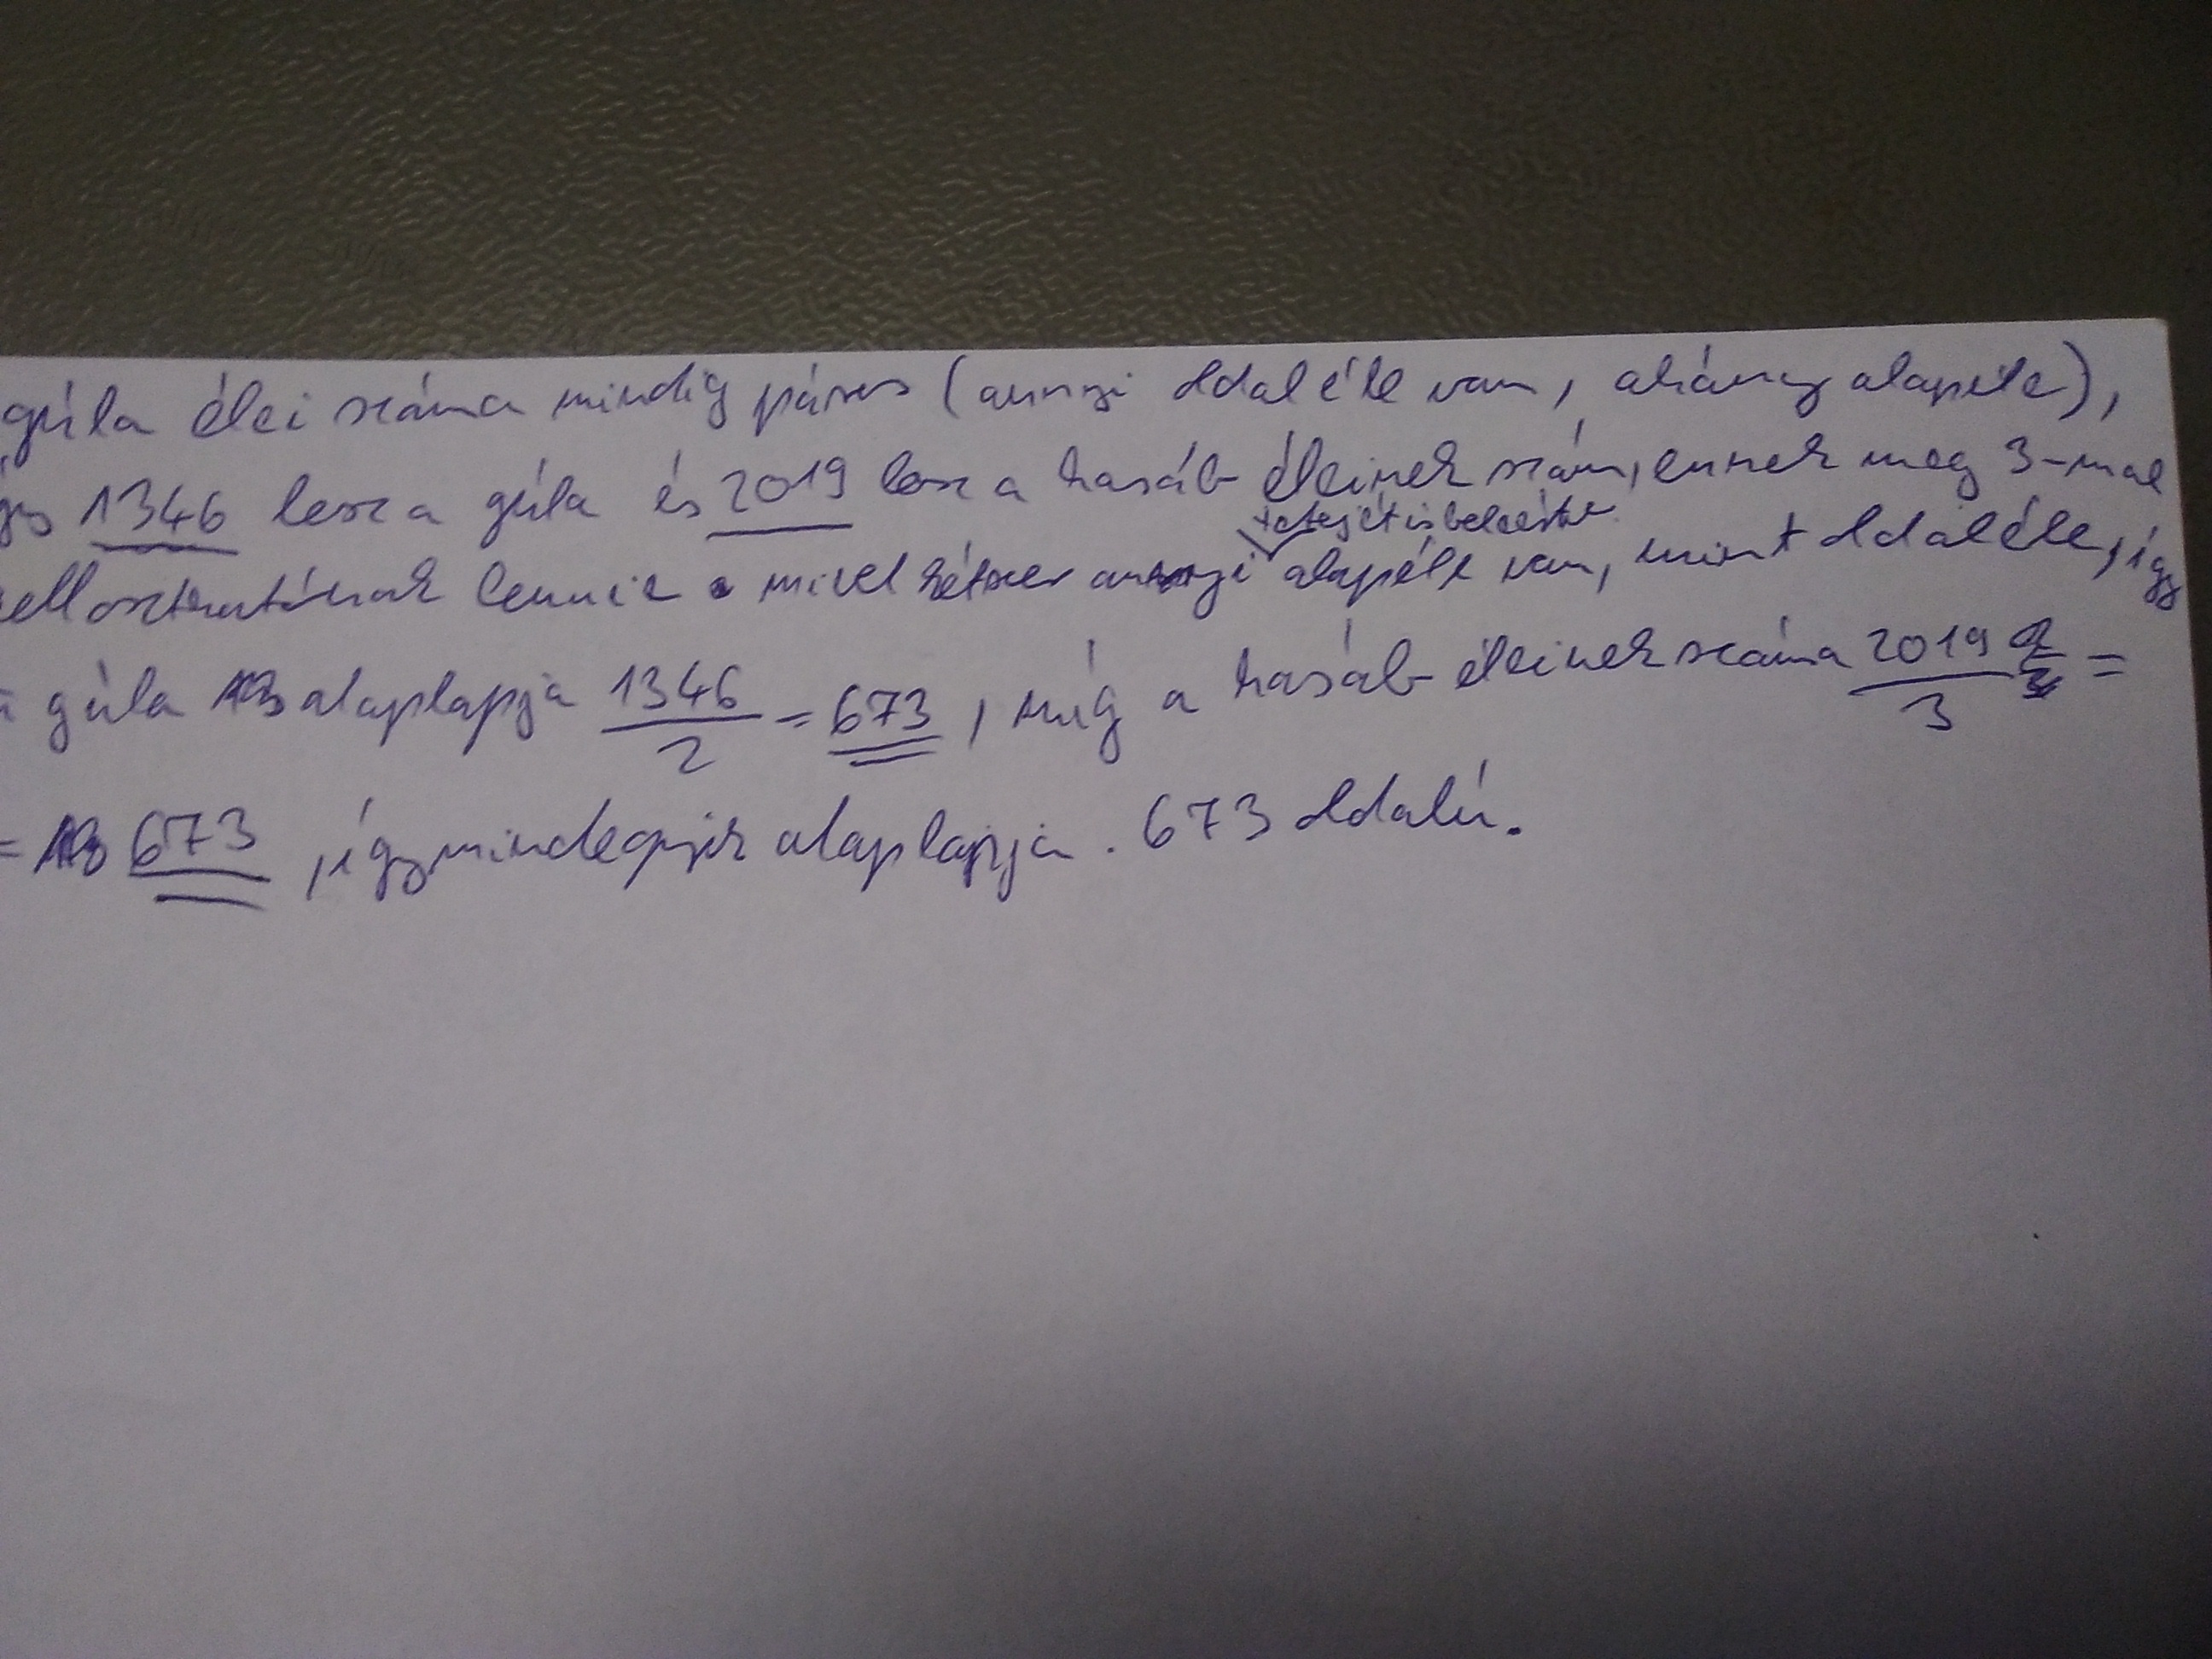 gúla élei száma mindig páros (annyi oldaléle van, ahány alapéle),
1346 lesz a gúla és 2019 lesz a hasáb éleinek szám, ennek meg 3-mal
oszthatónak lennie mivel kétszer annyi alapéle van, mint oldaléle, így
tetejét is beleértve
gúla alaplapja 1346/2 = 673, míg a hasáb éleinek száma 2019/3 =
= 673, így mindegyik alaplapja 673 oldalú.